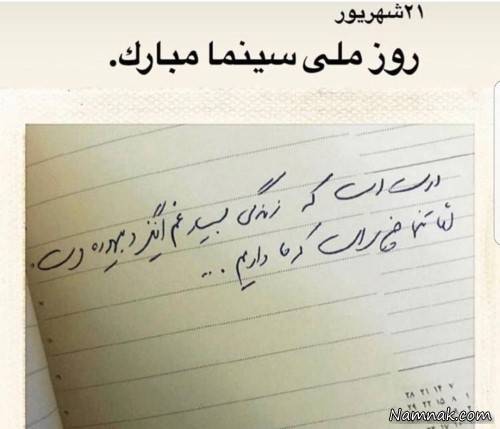 ۲۱شهریور
روز ملی سینما مبارک.
درست است که زندگی بسیار غم انگیز و بیهوده است.
اما تنها چیزی است که ما داریم ...
۷ ۱۴ ۲۱ ۲۸
۱ ۸ ۱۵ ۲۲ ۲۹
Namnak.com